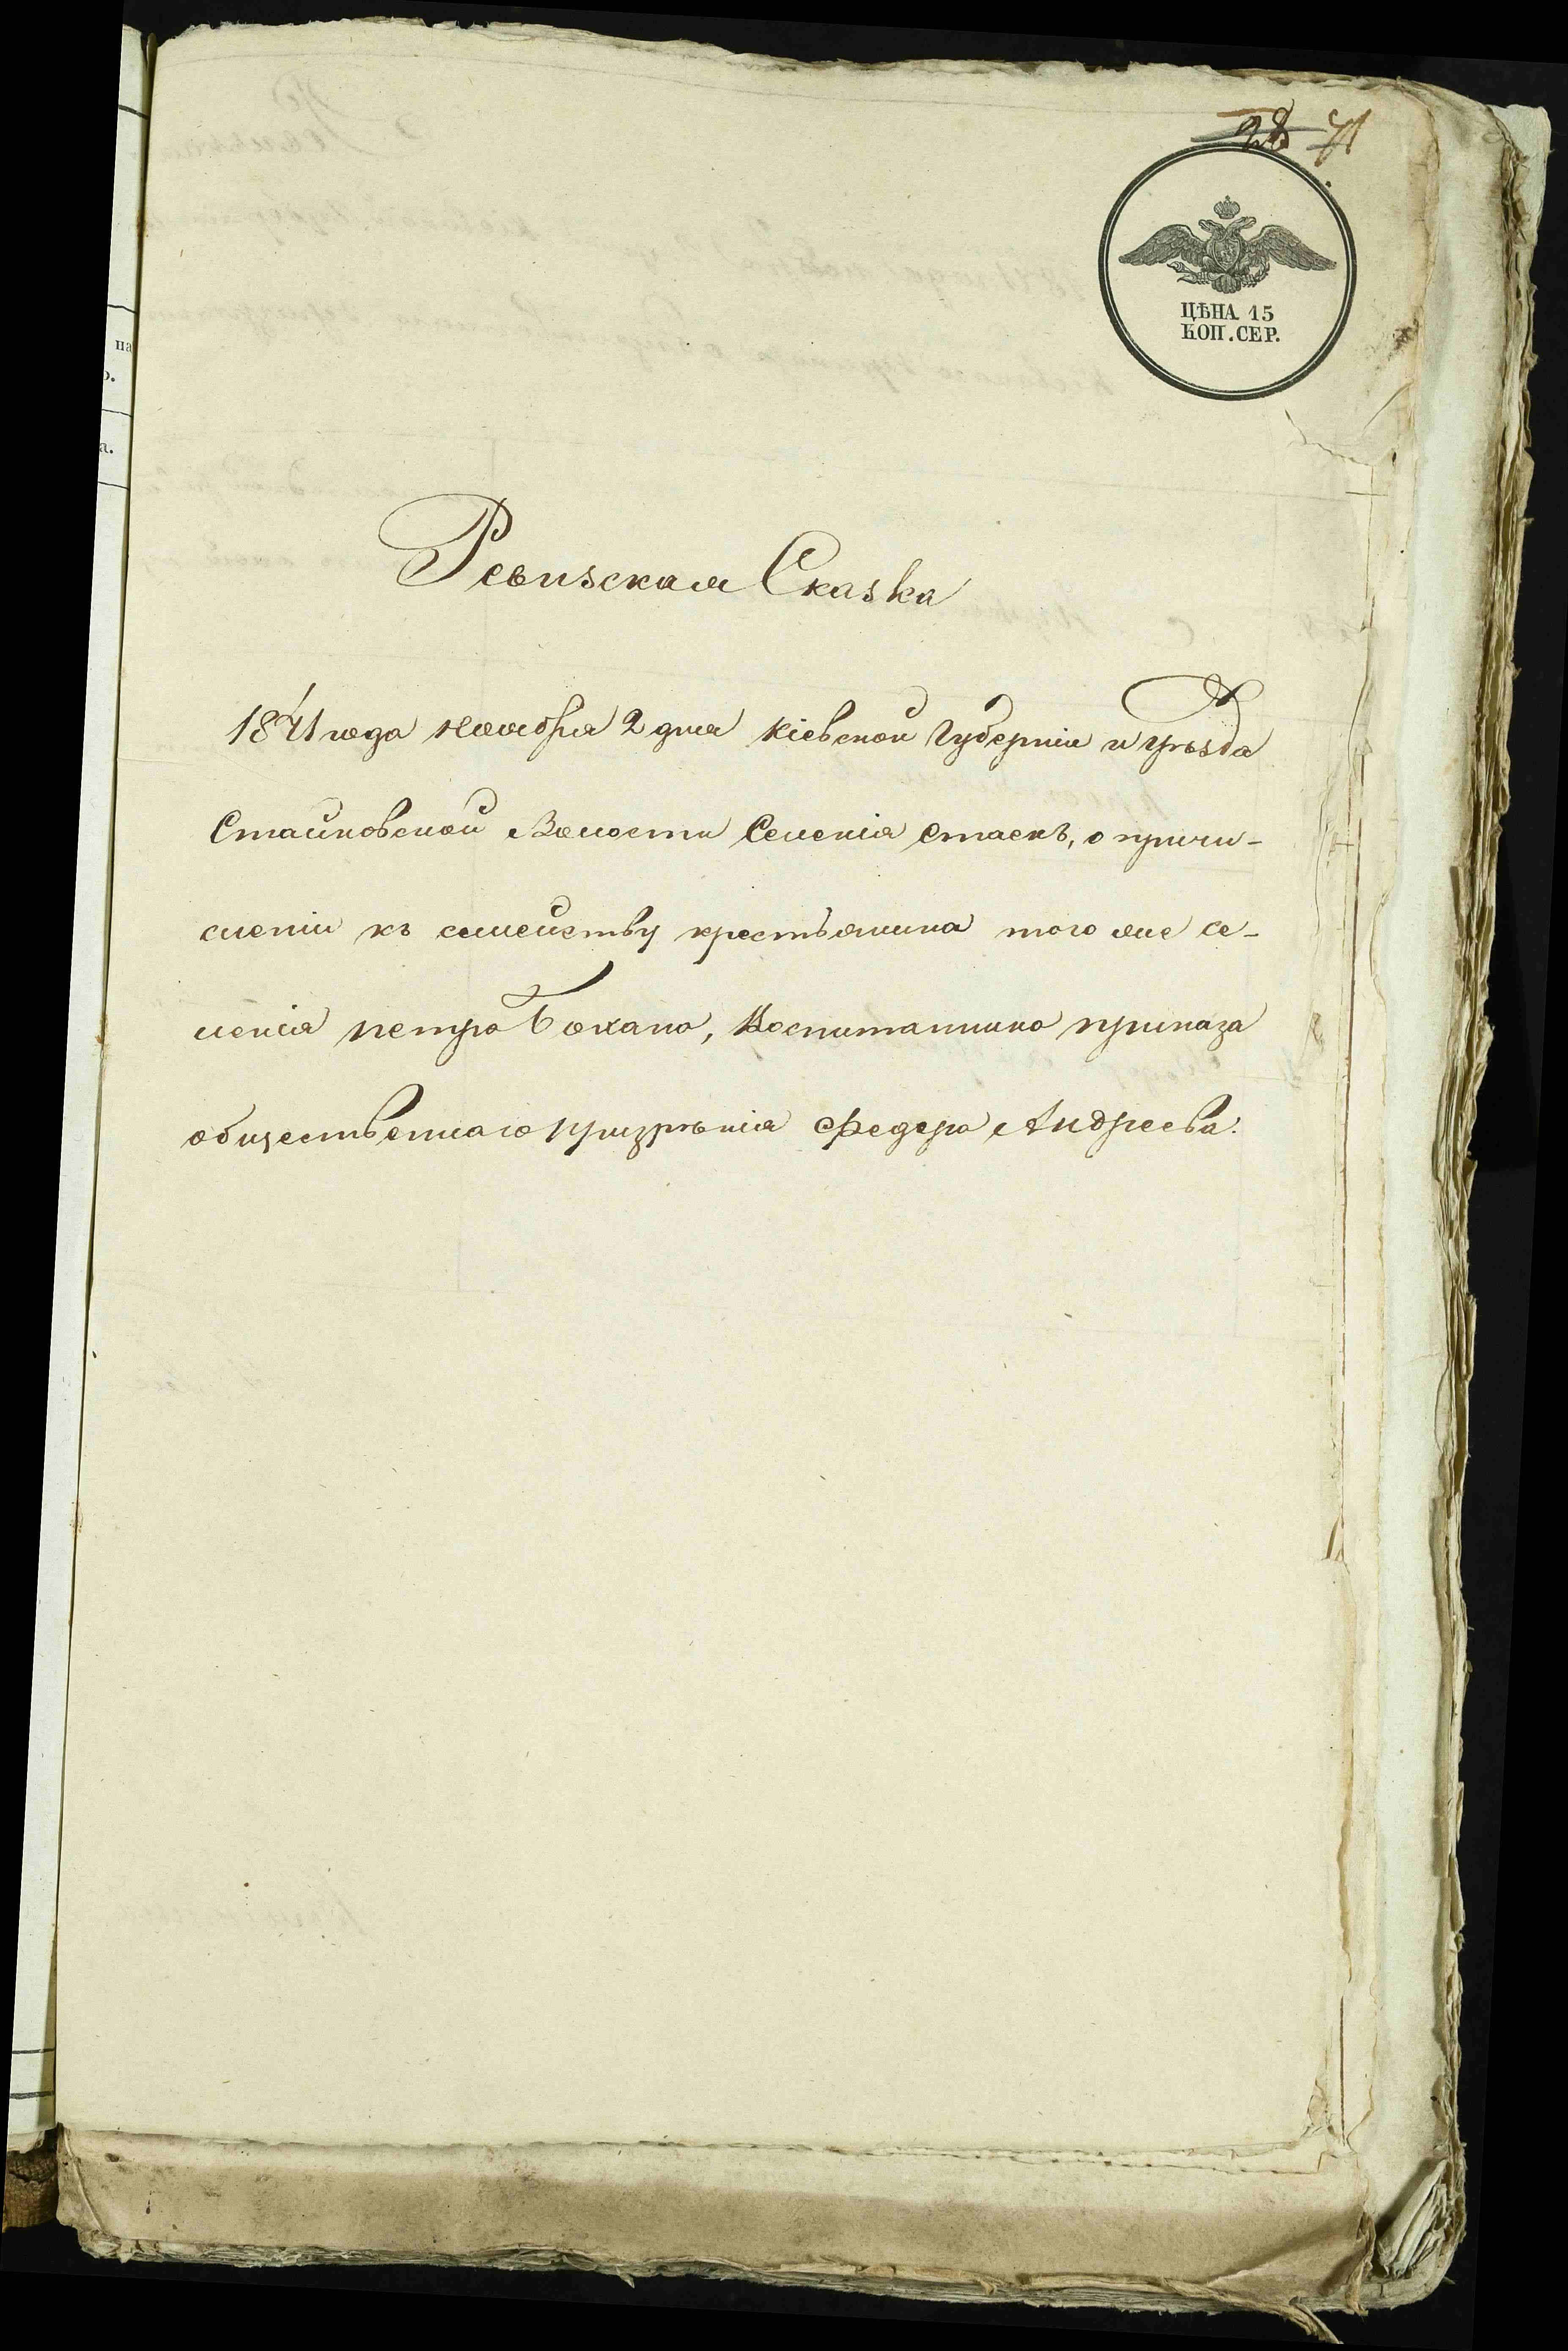 28 71
ЦѢНА 15
КОП. СЕР.
Ревизская Сказка
1841 года ноября 2 дня Кіевской Губерніи и уѣзда
Стайковской Волости Селенія Стаекъ, о причи-
сленіи къ семейству крестьянина того же се-
ленія Петра Бокана, Воспитанника приказа
общественнаго призрѣнія Федера Андреева.
на
а.